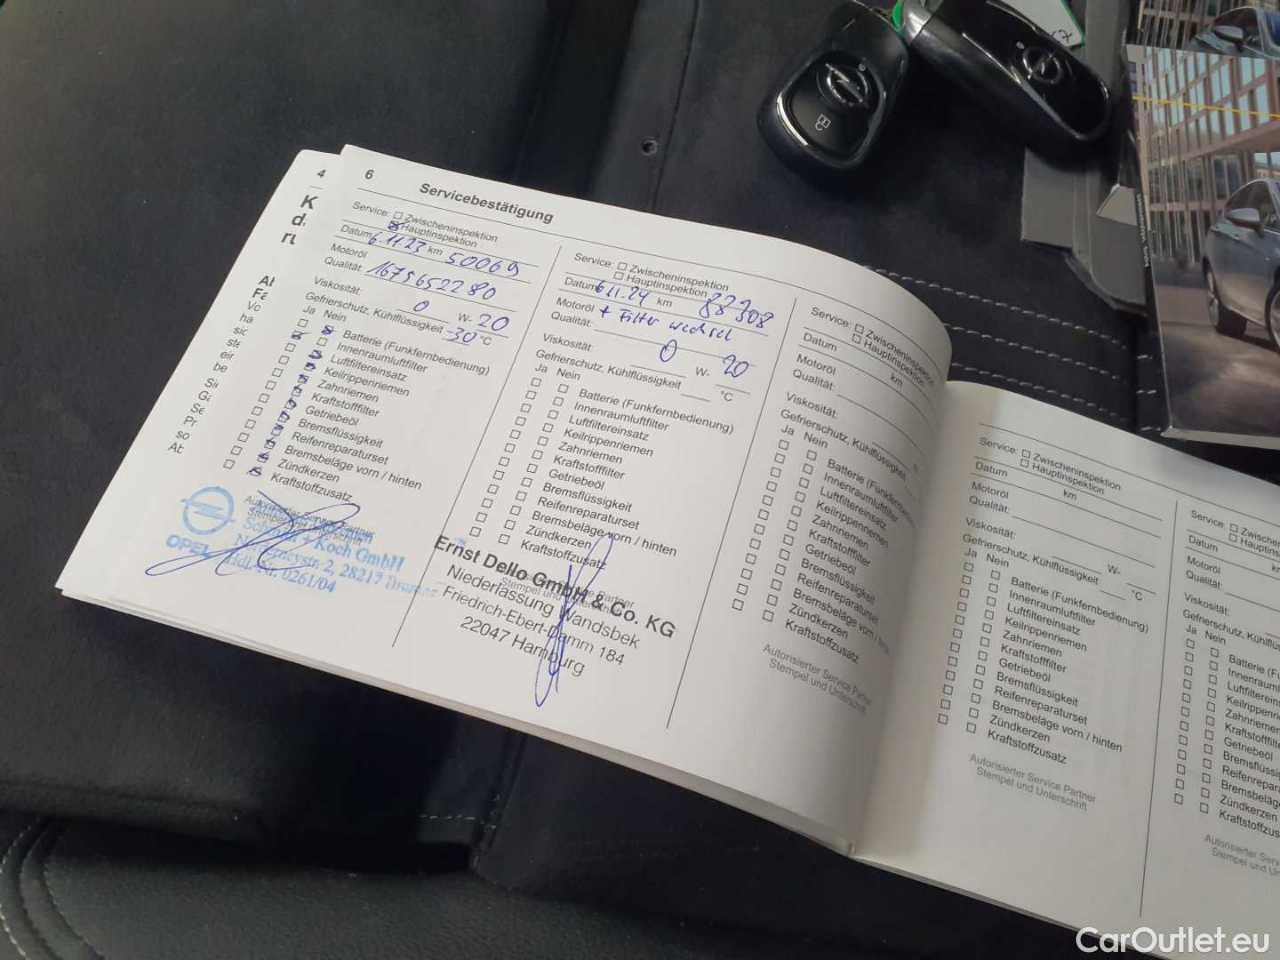 4
K
d
ri
6
Servicebestätigung
Service: Zwischeninspektion
Hauptinspektion
Datum 6.11.23 km 50069
Motoröl
Qualität: 1679652280
Viskosität: 0 W- 20
Gefrierschutz, Kühlflüssigkeit -30 °C
Ja Nein
Batterie (Funkfernbedienung)
Innenraumluftfilter
Luftfiltereinsatz
Keilrippenriemen
Zahnriemen
Kraftstofffilter
Getriebeöl
Bremsflüssigkeit
Reifenreparaturset
Bremsbeläge vorn / hinten
Zündkerzen
Kraftstoffzusatz
OPEL
Koch GmbH
2, 28217
0261/04
Service: Zwischeninspektion
Hauptinspektion
Datum 6.11.24 km
Motoröl + Filter wechsel
Qualität:
Viskosität: 0 W- 20
Gefrierschutz, Kühlflüssigkeit °C
Ja Nein
Batterie (Funkfernbedienung)
Innenraumluftfilter
Luftfiltereinsatz
Keilrippenriemen
Zahnriemen
Kraftstofffilter
Getriebeöl
Bremsflüssigkeit
Reifenreparaturset
Bremsbeläge vorn / hinten
Zündkerzen
Kraftstoffzusatz
Ernst Dello GmbH & Co. KG
Niederlassung Wandsbek
Friedrich-Ebert-Damm 184
22047 Hamburg
Service: Zwischeninspektion
Hauptinspektion
Datum km
Motoröl
Qualität:
Viskosität:
Gefrierschutz, Kühlflüssigkeit
Ja Nein
Batterie
Innenraumluftfilter
Luftfiltereinsatz
Keilrippenriemen
Zahnriemen
Kraftstofffilter
Getriebeöl
Bremsflüssigkeit
Reifenreparaturset
Bremsbeläge vorn /
Zündkerzen
Kraftstoffzusatz
Autorisierter Service Partner
Stempel und Unterschrift
Service: Zwischeninspektion
Hauptinspektion
Datum km
Motoröl
Qualität:
Viskosität: W-
Gefrierschutz, Kühlflüssigkeit °C
Ja Nein
Batterie (Funkfernbedienung)
Innenraumluftfilter
Luftfiltereinsatz
Keilrippenriemen
Zahnriemen
Kraftstofffilter
Getriebeöl
Bremsflüssigkeit
Reifenreparaturset
Bremsbeläge vorn / hinten
Zündkerzen
Kraftstoffzusatz
Autorisierter Service Partner
Stempel und Unterschrift
Service:
Datum
Motoröl
Qualität:
Viskosität:
Gefrierschutz,
Ja Nein
CarOutlet.eu